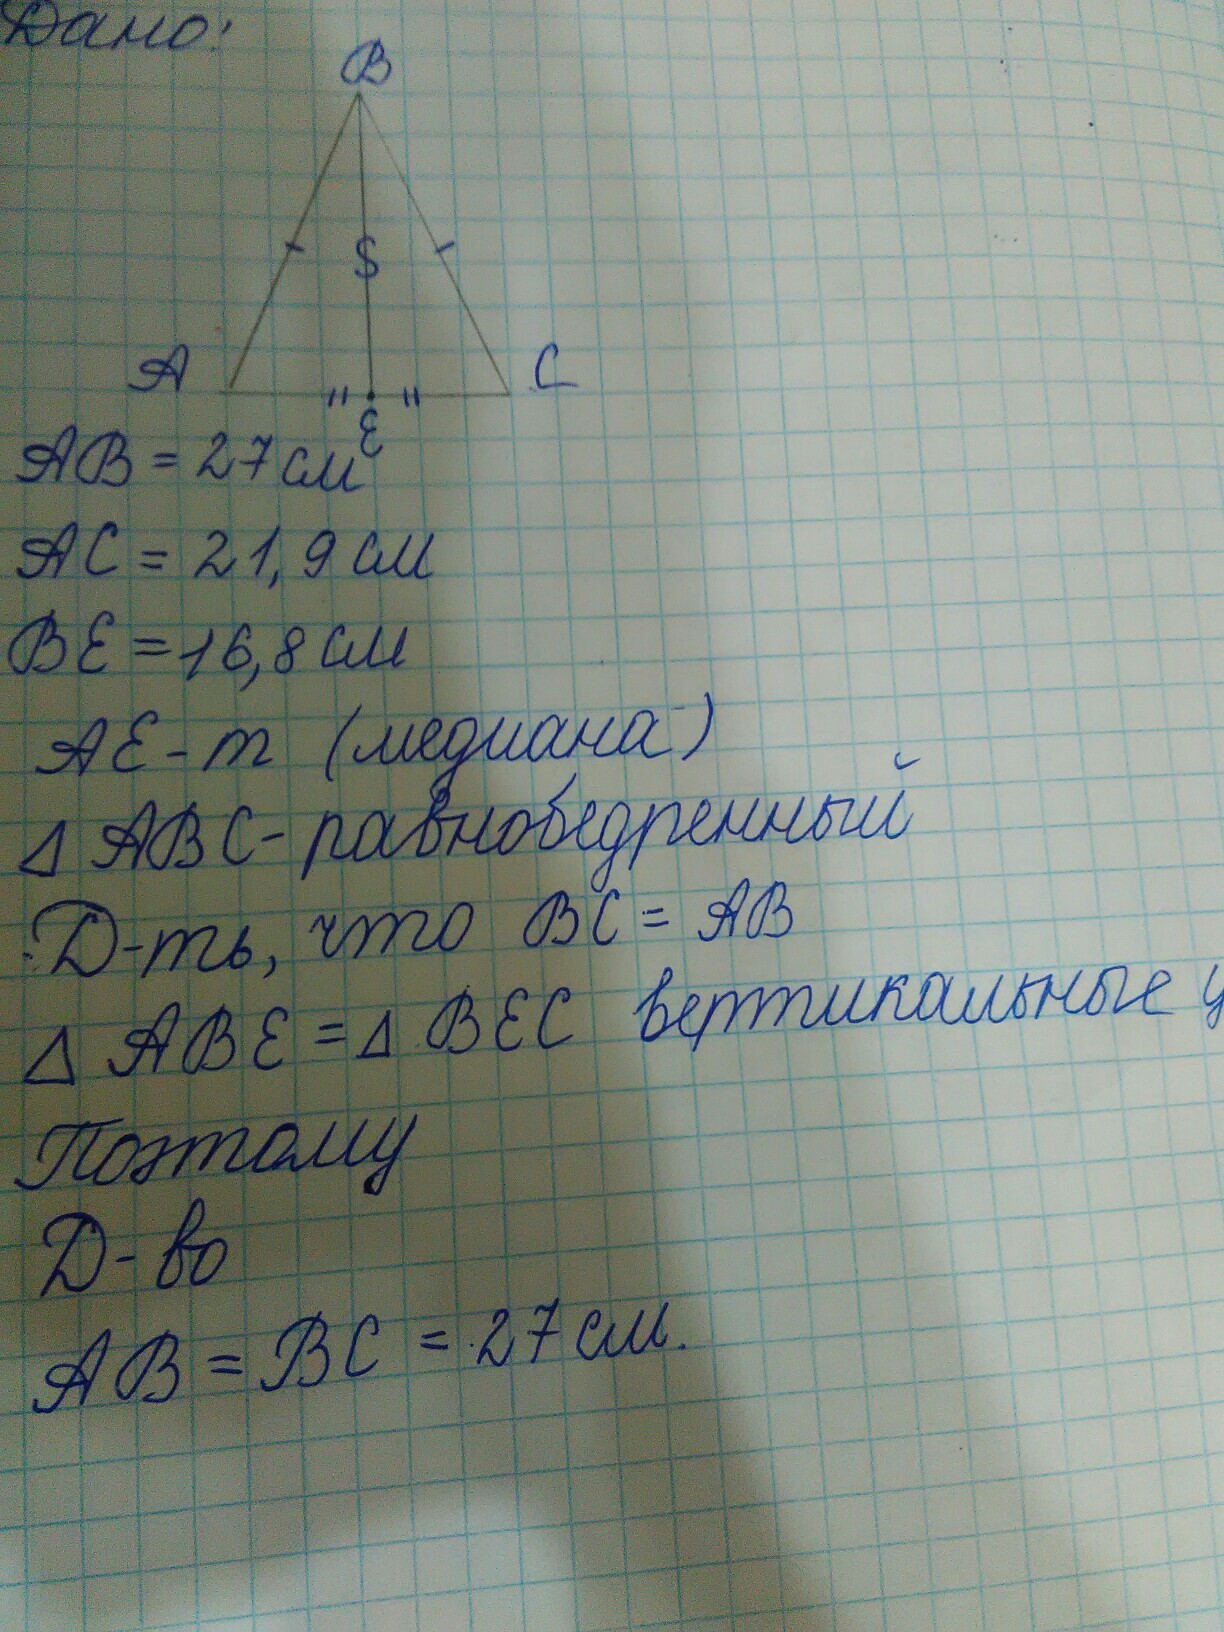 Дано:
B
S
A
C
E
AB = 27 см
AC = 21,9 см
BE = 16,8 см
AE - m (медиана)
△ ABC - равнобедренный
Д-ть, что BC = AB
△ ABE = △ BEC вертикальные
Поэтому
Д-во
AB = BC = 27 см.